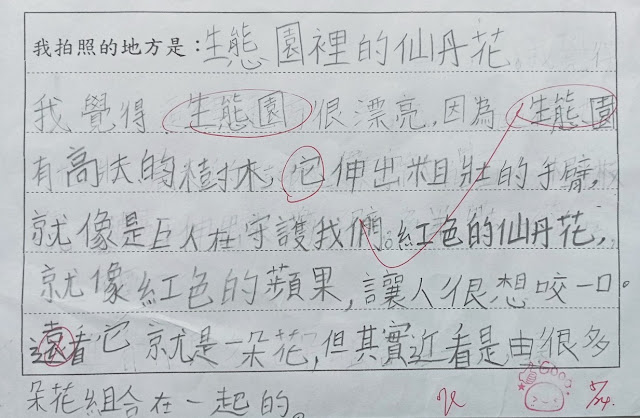 我拍照的地方是：生態園裡的仙丹花
我覺得，生態園很漂亮，因為生態園
有高大的樹木，它伸出粗壯的手臂，
就像是巨人在守護我們。紅色的仙丹花，
就像紅色的蘋果，讓人很想咬一口。
遠看它就是一朵花，但其實近看是由很多
朵花組合在一起的。
Good
5/24.